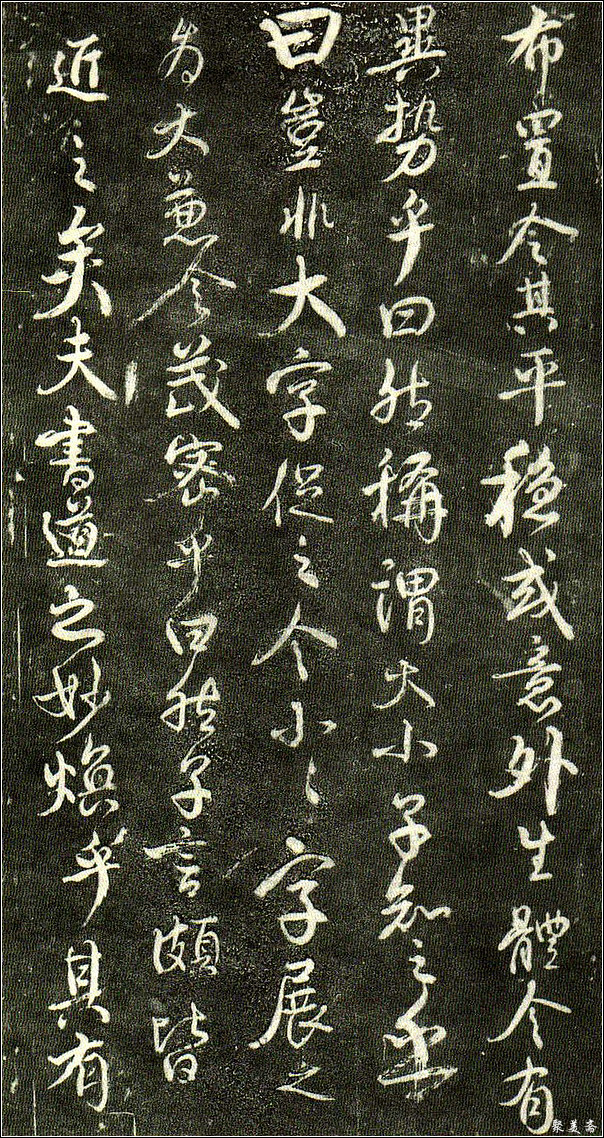 布置令其平穩或意外生體令有
異勢乎曰然稱謂大小子知之乎
曰豈非大字促之令小小字展之
為大兼令茂密乎曰然子言頗皆
近之矣夫書道之妙煥乎其有
聚美斋